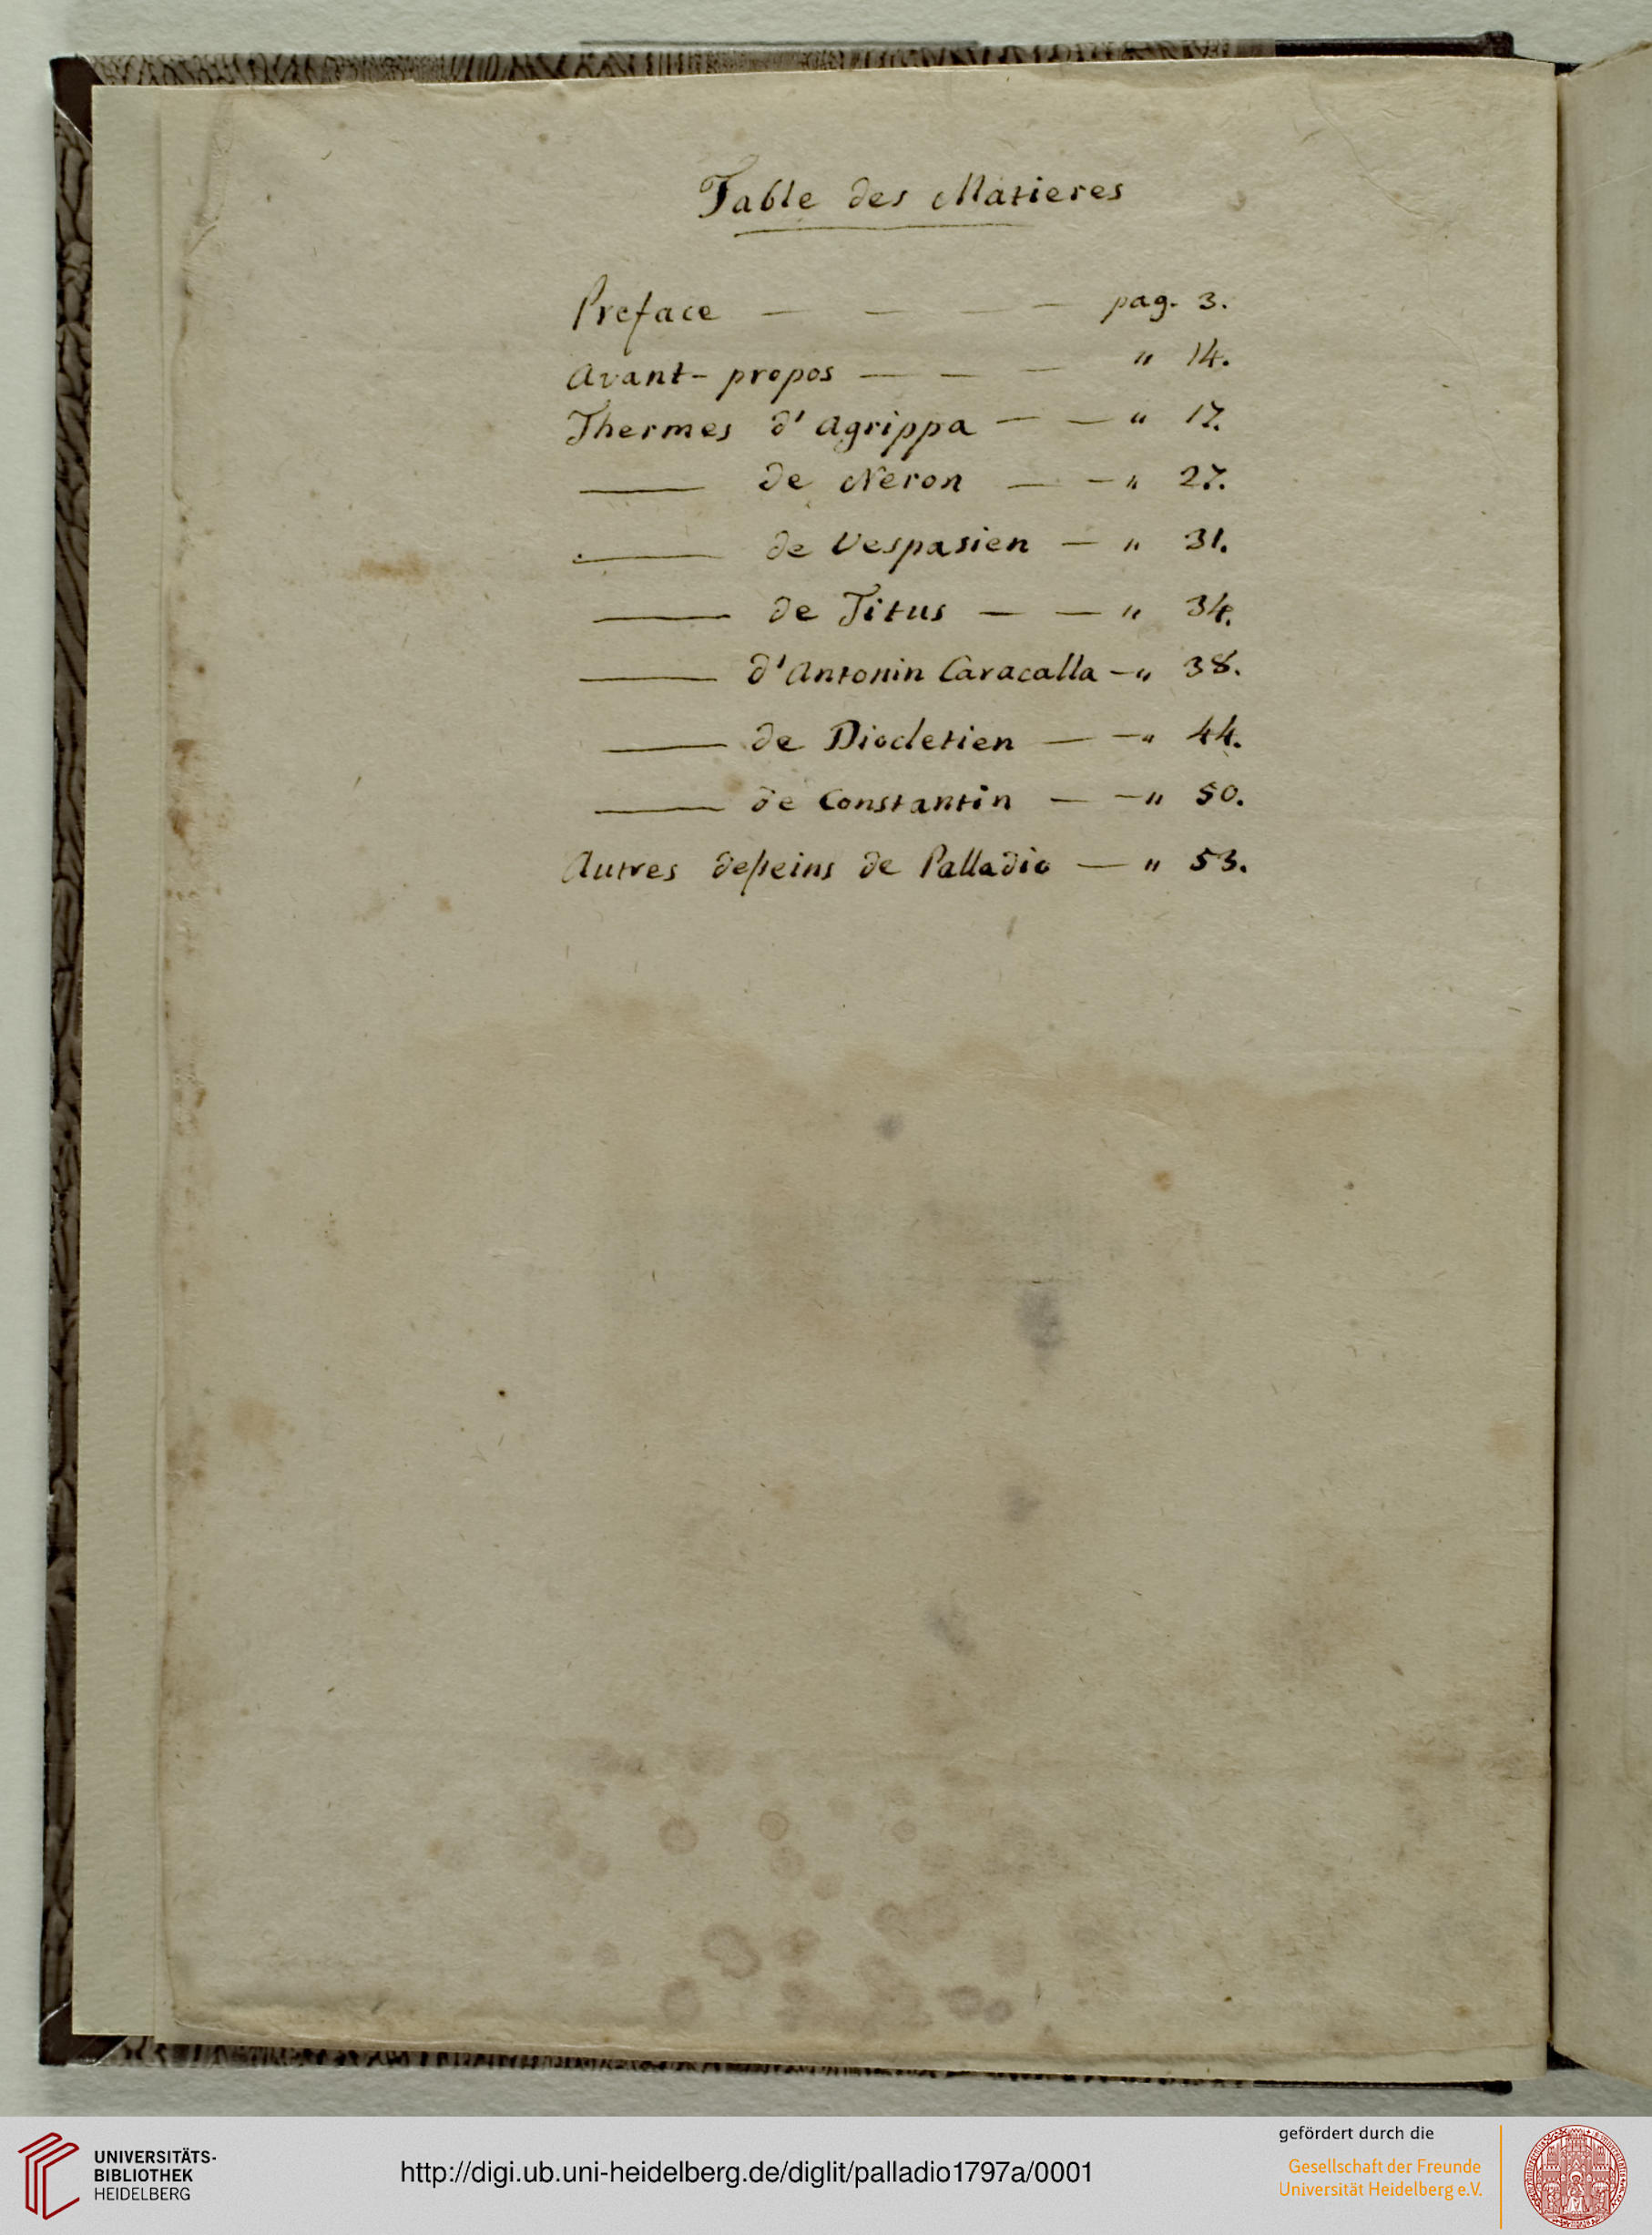 Table des Matieres
Preface — — — — pag. 3.
Avant-propos — — — " 14.
Thermes d'Agrippa — — " 17.
—— de Neron — — " 27.
—— de Vespasien — " 31.
—— de Titus — — " 34.
—— d'Antonin Caracalla — " 38.
—— de Diocletien — — " 44.
—— de Constantin — — " 50.
Autres desseins de Palladio — " 53.
UNIVERSITÄTS-
BIBLIOTHEK
HEIDELBERG
http://digi.ub.uni-heidelberg.de/diglit/palladio1797a/0001
gefördert durch die
Gesellschaft der Freunde
Universität Heidelberg e.V.